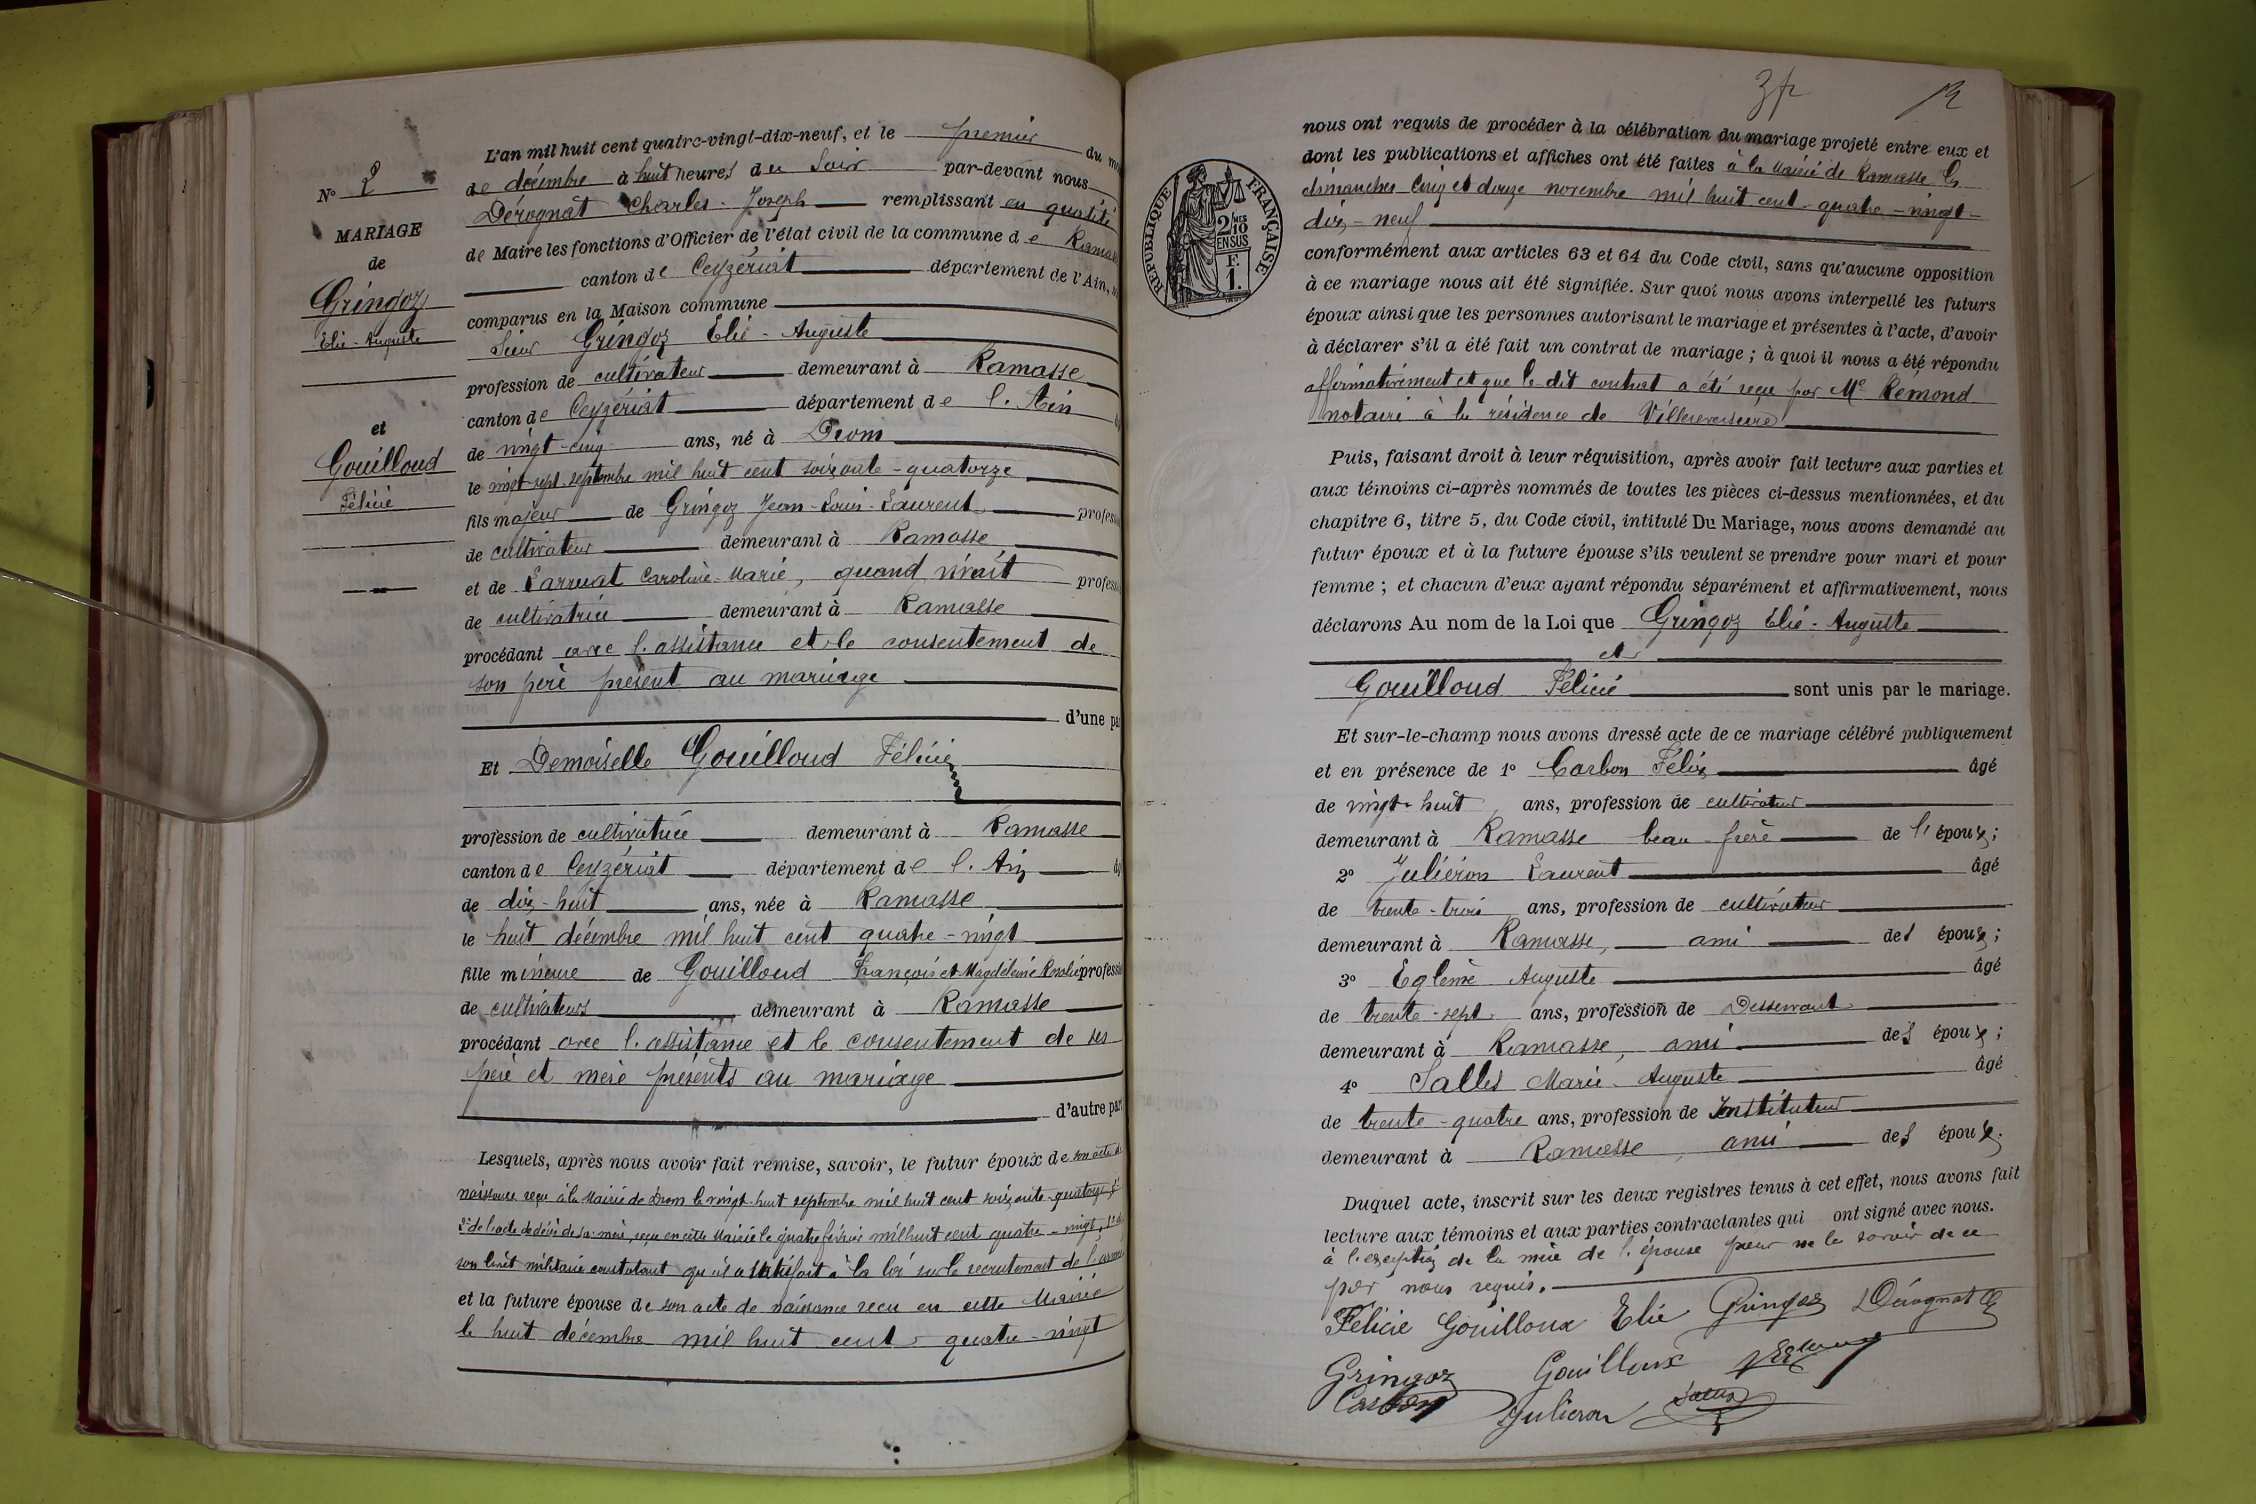 L'an mil huit cent quatre-vingt-dix-neuf, et le premier du mo
de décembre à huit heures du Soir par-devant nous
Dérognat Charles-Joseph remplissant en qualité
de Maire les fonctions d'Officier de l'état civil de la commune de Ramas
canton de Ceyzériat département de l'Ain,
comparus en la Maison commune
Sieur Gringoz Elie-Auguste
profession de cultivateur demeurant à Ramasse
canton de Ceyzériat département de l'Ain
de vingt-cinq ans, né à Drom
le vingt-sept septembre mil huit cent soixante-quatorze
fils majeur de Gringoz Jean-Louis-Laurent profess
de cultivateur demeurant à Ramasse
et de Carruat Caroline-Marie, quand vivait profess
de cultivatrice demeurant à Ramasse
procédant avec l'assistance et le consentement de
son père présent au mariage
d'une pa
Et Demoiselle Gouilloud Félicie
profession de cultivatrice demeurant à Ramasse
canton de Ceyzériat département de l'Ain
de dix-huit ans, née à Ramasse
le huit décembre mil huit cent quatre-vingt
fille mineure de Gouilloud François et Magdeleine professi
de cultivateurs demeurant à Ramasse
procédant avec l'assistance et le consentement de ses
père et mère présents au mariage
d'autre par
Lesquels, après nous avoir fait remise, savoir, le futur époux de son acte de
naissance reçu à la Mairie de Drom le vingt-huit septembre mil huit cent soixante-quatorze,
2° de l'acte de décès de sa mère, reçu en cette Mairie le quatre février mil huit cent quatre-vingt,
son livret militaire constatant qu'il a satisfait à la loi sur le recrutement de l'armée
et la future épouse de son acte de naissance reçu en cette Mairie
le huit décembre mil huit cent quatre-vingt
N° 2
MARIAGE
de
Gringoz
Elie-Auguste
et
Gouilloud
Félicie
3f
12
RÉPUBLIQUE FRANÇAISE
2/10 MES
EN SUS
F.
1.
nous ont requis de procéder à la célébration du mariage projeté entre eux et
dont les publications et affiches ont été faites à la Mairie de Ramasse les
dimanches cinq et douze novembre mil huit cent-quatre-vingt-
dix-neuf
conformément aux articles 63 et 64 du Code civil, sans qu'aucune opposition
à ce mariage nous ait été signifiée. Sur quoi nous avons interpellé les futurs
époux ainsi que les personnes autorisant le mariage et présentes à l'acte, d'avoir
à déclarer s'il a été fait un contrat de mariage ; à quoi il nous a été répondu
affirmativement et que le dit contrat a été reçu par Me Remond
notaire à la résidence de Villereversure
Puis, faisant droit à leur réquisition, après avoir fait lecture aux parties et
aux témoins ci-après nommés de toutes les pièces ci-dessus mentionnées, et du
chapitre 6, titre 5, du Code civil, intitulé Du Mariage, nous avons demandé au
futur époux et à la future épouse s'ils veulent se prendre pour mari et pour
femme ; et chacun d'eux ayant répondu séparément et affirmativement, nous
déclarons Au nom de la Loi que Gringoz Elie-Auguste
et
Gouilloud Félicie sont unis par le mariage.
Et sur-le-champ nous avons dressé acte de ce mariage célébré publiquement
et en présence de 1° Carbon Félix âgé
de vingt-huit ans, profession de cultivateur
demeurant à Ramasse beau-frère de l'époux ;
2° Juliéron Laurent âgé
de trente-trois ans, profession de cultivateur
demeurant à Ramasse, ami des époux ;
3° Egleme Auguste âgé
de trente-sept ans, profession de Desservant
demeurant à Ramasse, ami des époux ;
4° Salles Marie-Auguste âgé
de trente-quatre ans, profession de Instituteur
demeurant à Ramasse, ami des époux.
Duquel acte, inscrit sur les deux registres tenus à cet effet, nous avons fait
lecture aux témoins et aux parties contractantes qui ont signé avec nous.
à l'exception de la mère de l'épouse pour ne le savoir de ce
par nous requis.
Félicie Gouilloux Elie Gringoz Dérognat
Gringoz Gouilloux
Carbon Julieron Salles